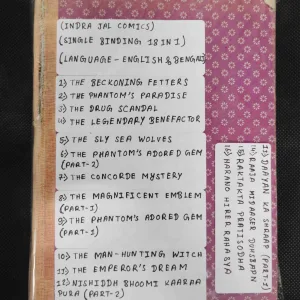 (INDRA JAL COMICS)
(SINGLE BINDING 18 IN 1)
(LANGUAGE - ENGLISH & BENGALI)
1) THE BECKONING FETTERS
2) THE PHANTOM'S PARADISE
3) THE DRUG SCANDAL
4) THE LEGENDARY BENEFACTOR
5) THE SLY SEA WOLVES
6) THE PHANTOM'S ADORED GEM
(PART-2)
7) THE CONCORDE MYSTERY
8) THE MAGNIFICENT EMBLEM
(PART-1)
9) THE PHANTOM'S ADORED GEM
(PART-1)
10) THE MAN-HUNTING WITCH
11) THE EMPEROR'S DREAM
12) NISHIDDH BHOOMI KAARAA
PURA (PART-2)
13) DAAYAN KA SHRAAP (PART-1)
14) RAAJA MIDAAGER
15) RAKTAKTA PRATISODHA
16) HARANO HIRER RAHASYA